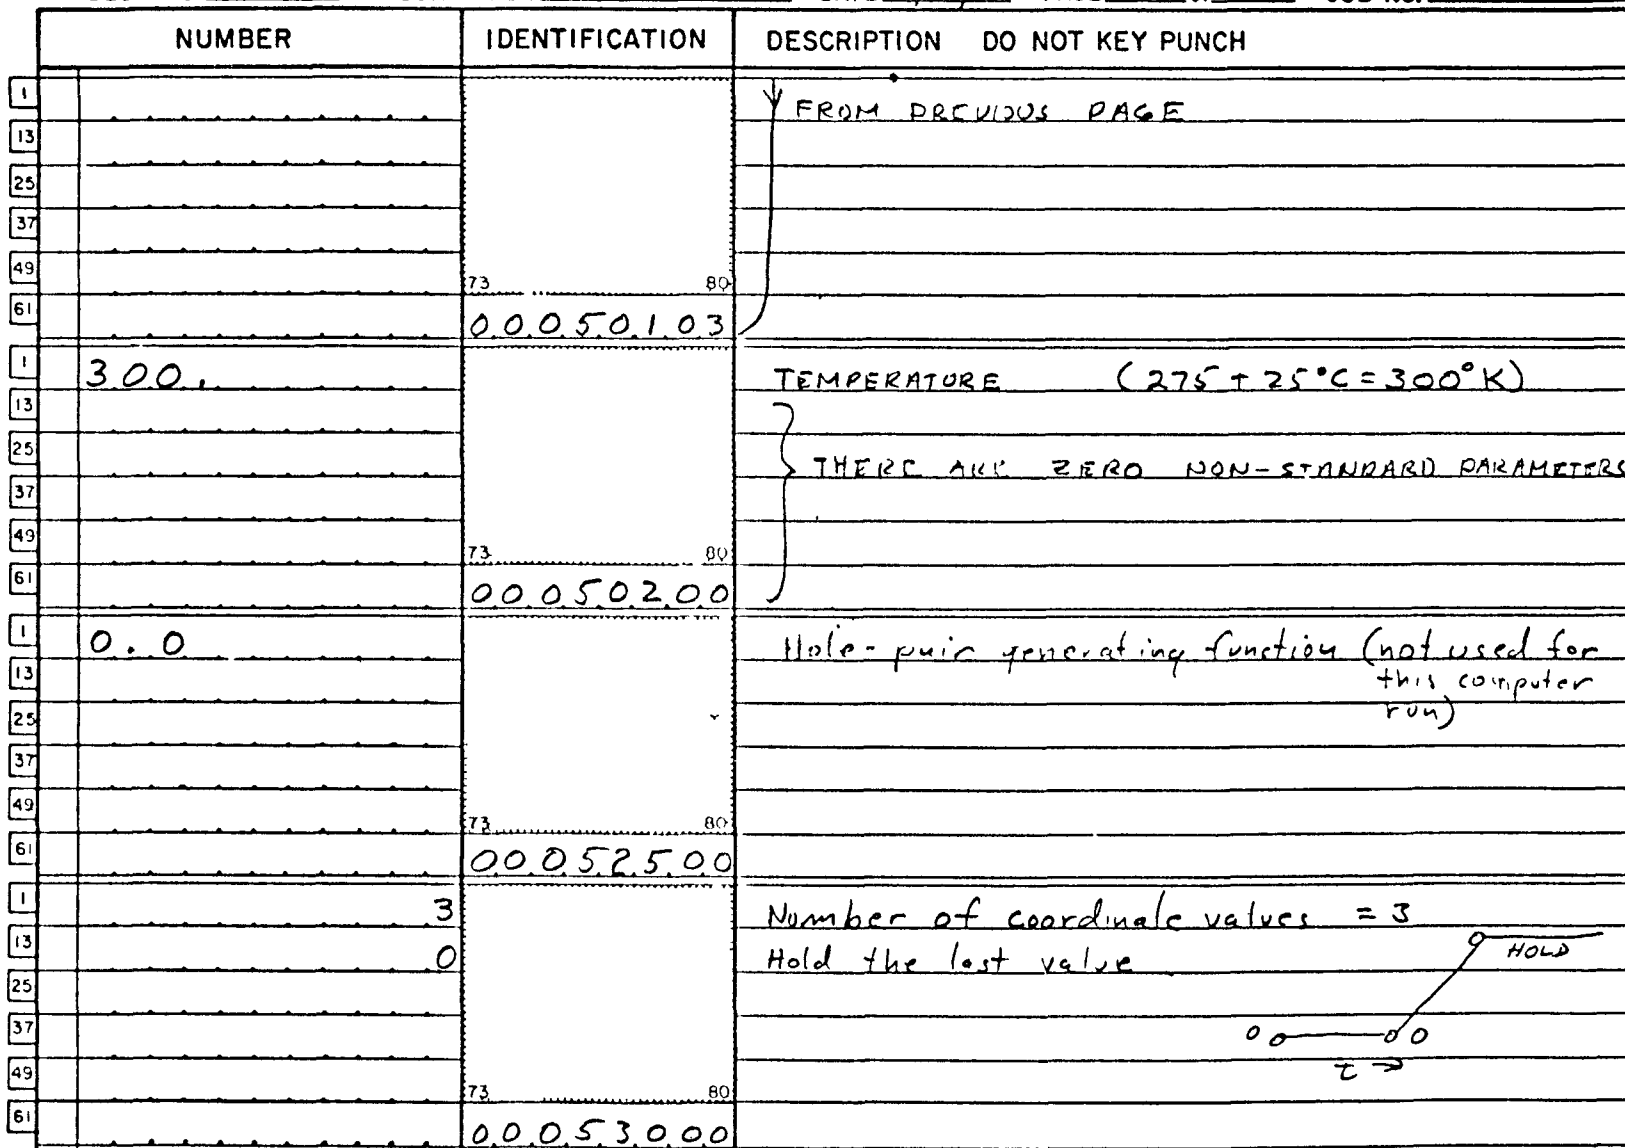 NUMBER IDENTIFICATION DESCRIPTION DO NOT KEY PUNCH
1 FROM PREVIOUS PAGE
13
25
37
49
73 80
61
00050103
1
300. TEMPERATURE (275 + 25°C = 300°K)
13
25
THERE ARE ZERO NON-STANDARD PARAMETERS
37
49
73 80
61
00050200
1
0.0 Hole-pair generating function (not used for
13 this computer
25 run)
37
49
73 80
61
00052500
1
3 Number of coordinate values = 3
13
0 Hold the last value HOLD
25
37
0 0
49
τ
73 80
61
00053000